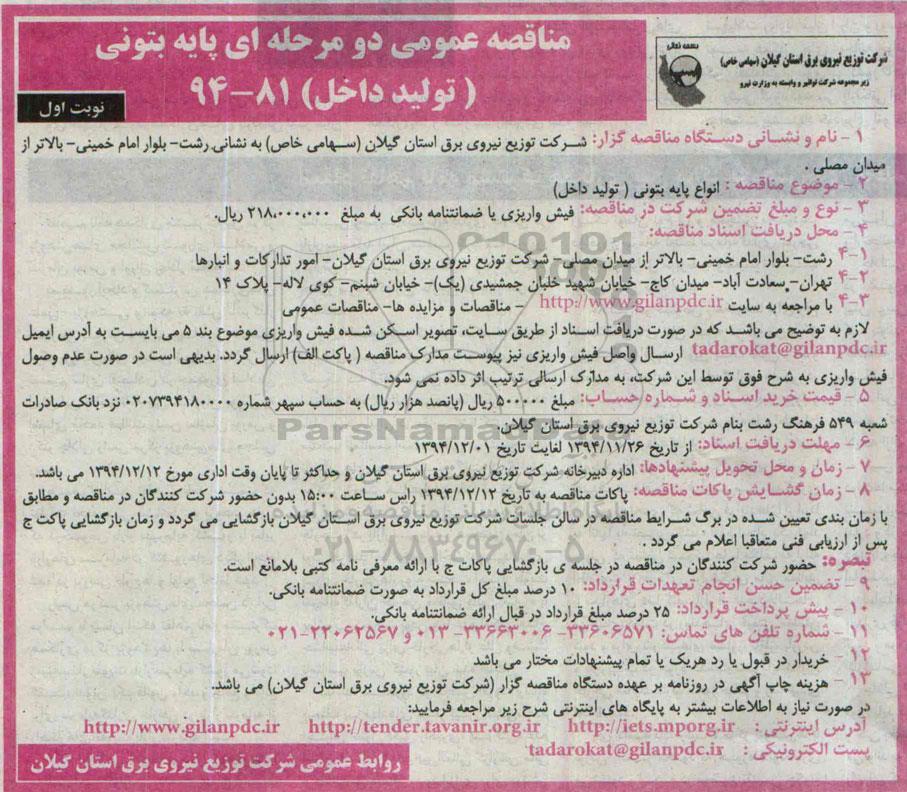 بسمه تعالی
شرکت توزیع نیروی برق استان گیلان (سهامی خاص)
زیر مجموعه شرکت توانیر و وابسته به وزارت نیرو
مناقصه عمومی دو مرحله ای پایه بتونی
( تولید داخل) ۸۱-۹۴
نوبت اول
۱ - نام و نشانی دستگاه مناقصه گزار: شرکت توزیع نیروی برق استان گیلان (سهامی خاص) به نشانی رشت- بلوار امام خمینی- بالاتر از
میدان مصلی .
۲ - موضوع مناقصه : انواع پایه بتونی ( تولید داخل)
۳ - نوع و مبلغ تضمین شرکت در مناقصه: فیش واریزی یا ضمانتنامه بانکی به مبلغ ۲۱۸,۰۰۰,۰۰۰ ریال.
۴ - محل دریافت اسناد مناقصه:
۴-۱ رشت- بلوار امام خمینی- بالاتر از میدان مصلی- شرکت توزیع نیروی برق استان گیلان- امور تدارکات و انبارها
۴-۲ تهران- سعادت آباد- میدان کاج- خیابان شهید خلبان جمشیدی (یک)- خیابان شبنم- کوی لاله- پلاک ۱۴
۴-۳ با مراجعه به سایت http://www.gilanpdc.ir - مناقصات و مزایده ها- مناقصات عمومی
لازم به توضیح می باشد که در صورت دریافت اسناد از طریق سایت، تصویر اسکن شده فیش واریزی موضوع بند ۵ می بایست به آدرس ایمیل
tadarokat@gilanpdc.ir ارسال واصل فیش واریزی نیز پیوست مدارک مناقصه ( پاکت الف) ارسال گردد. بدیهی است در صورت عدم وصول
فیش واریزی به شرح فوق توسط این شرکت، به مدارک ارسالی ترتیب اثر داده نمی شود.
۵ - قیمت خرید اسناد و شماره حساب: مبلغ ۵۰۰,۰۰۰ ریال (پانصد هزار ریال) به حساب سپهر شماره ۰۲۰۷۳۹۴۱۸۰۰۰۰ نزد بانک صادرات
شعبه ۵۴۹ فرهنگ رشت بنام شرکت توزیع نیروی برق استان گیلان.
۶ - مهلت دریافت اسناد: از تاریخ ۱۳۹۴/۱۱/۲۶ لغایت تاریخ ۱۳۹۴/۱۲/۰۱
۷ - زمان و محل تحویل پیشنهادها: اداره دبیرخانه شرکت توزیع نیروی برق استان گیلان و حداکثر تا پایان وقت اداری مورخ ۱۳۹۴/۱۲/۱۲ می باشد.
۸ - زمان گشایش پاکات مناقصه: پاکات مناقصه به تاریخ ۱۳۹۴/۱۲/۱۲ راس ساعت ۱۵:۰۰ بدون حضور شرکت کنندگان در مناقصه و مطابق
با زمان بندی تعیین شده در برگ شرایط مناقصه در سالن جلسات شرکت توزیع نیروی برق استان گیلان بازگشایی می گردد و زمان بازگشایی پاکت ج
پس از ارزیابی فنی متعاقبا اعلام می گردد .
تبصره: حضور شرکت کنندگان در مناقصه در جلسه ی بازگشایی پاکات ج با ارائه معرفی نامه کتبی بلامانع است.
۹ - تضمین حسن انجام تعهدات قرارداد: ۱۰ درصد مبلغ کل قرارداد به صورت ضمانتنامه بانکی.
۱۰ - پیش پرداخت قرارداد: ۲۵ درصد مبلغ قرارداد در قبال ارائه ضمانتنامه بانکی.
۱۱ - شماره تلفن های تماس: ۳۳۶۰۶۵۷۱- ۳۳۶۶۳۰۰۶- ۰۱۳ و ۲۲۰۶۲۵۶۷-۰۲۱
۱۲ - خریدار در قبول یا رد هریک یا تمام پیشنهادات مختار می باشد
۱۳ - هزینه چاپ آگهی در روزنامه بر عهده دستگاه مناقصه گزار (شرکت توزیع نیروی برق استان گیلان) می باشد.
در صورت نیاز به اطلاعات بیشتر به پایگاه های اینترنتی شرح زیر مراجعه فرمایید:
آدرس اینترنتی : http://iets.mporg.ir http://tender.tavanir.org.ir http://www.gilanpdc.ir
پست الکترونیکی : tadarokat@gilanpdc.ir
روابط عمومی شرکت توزیع نیروی برق استان گیلان
ParsNamad
۰۲۱-۸۸۳۴۹۶۷۰-۵